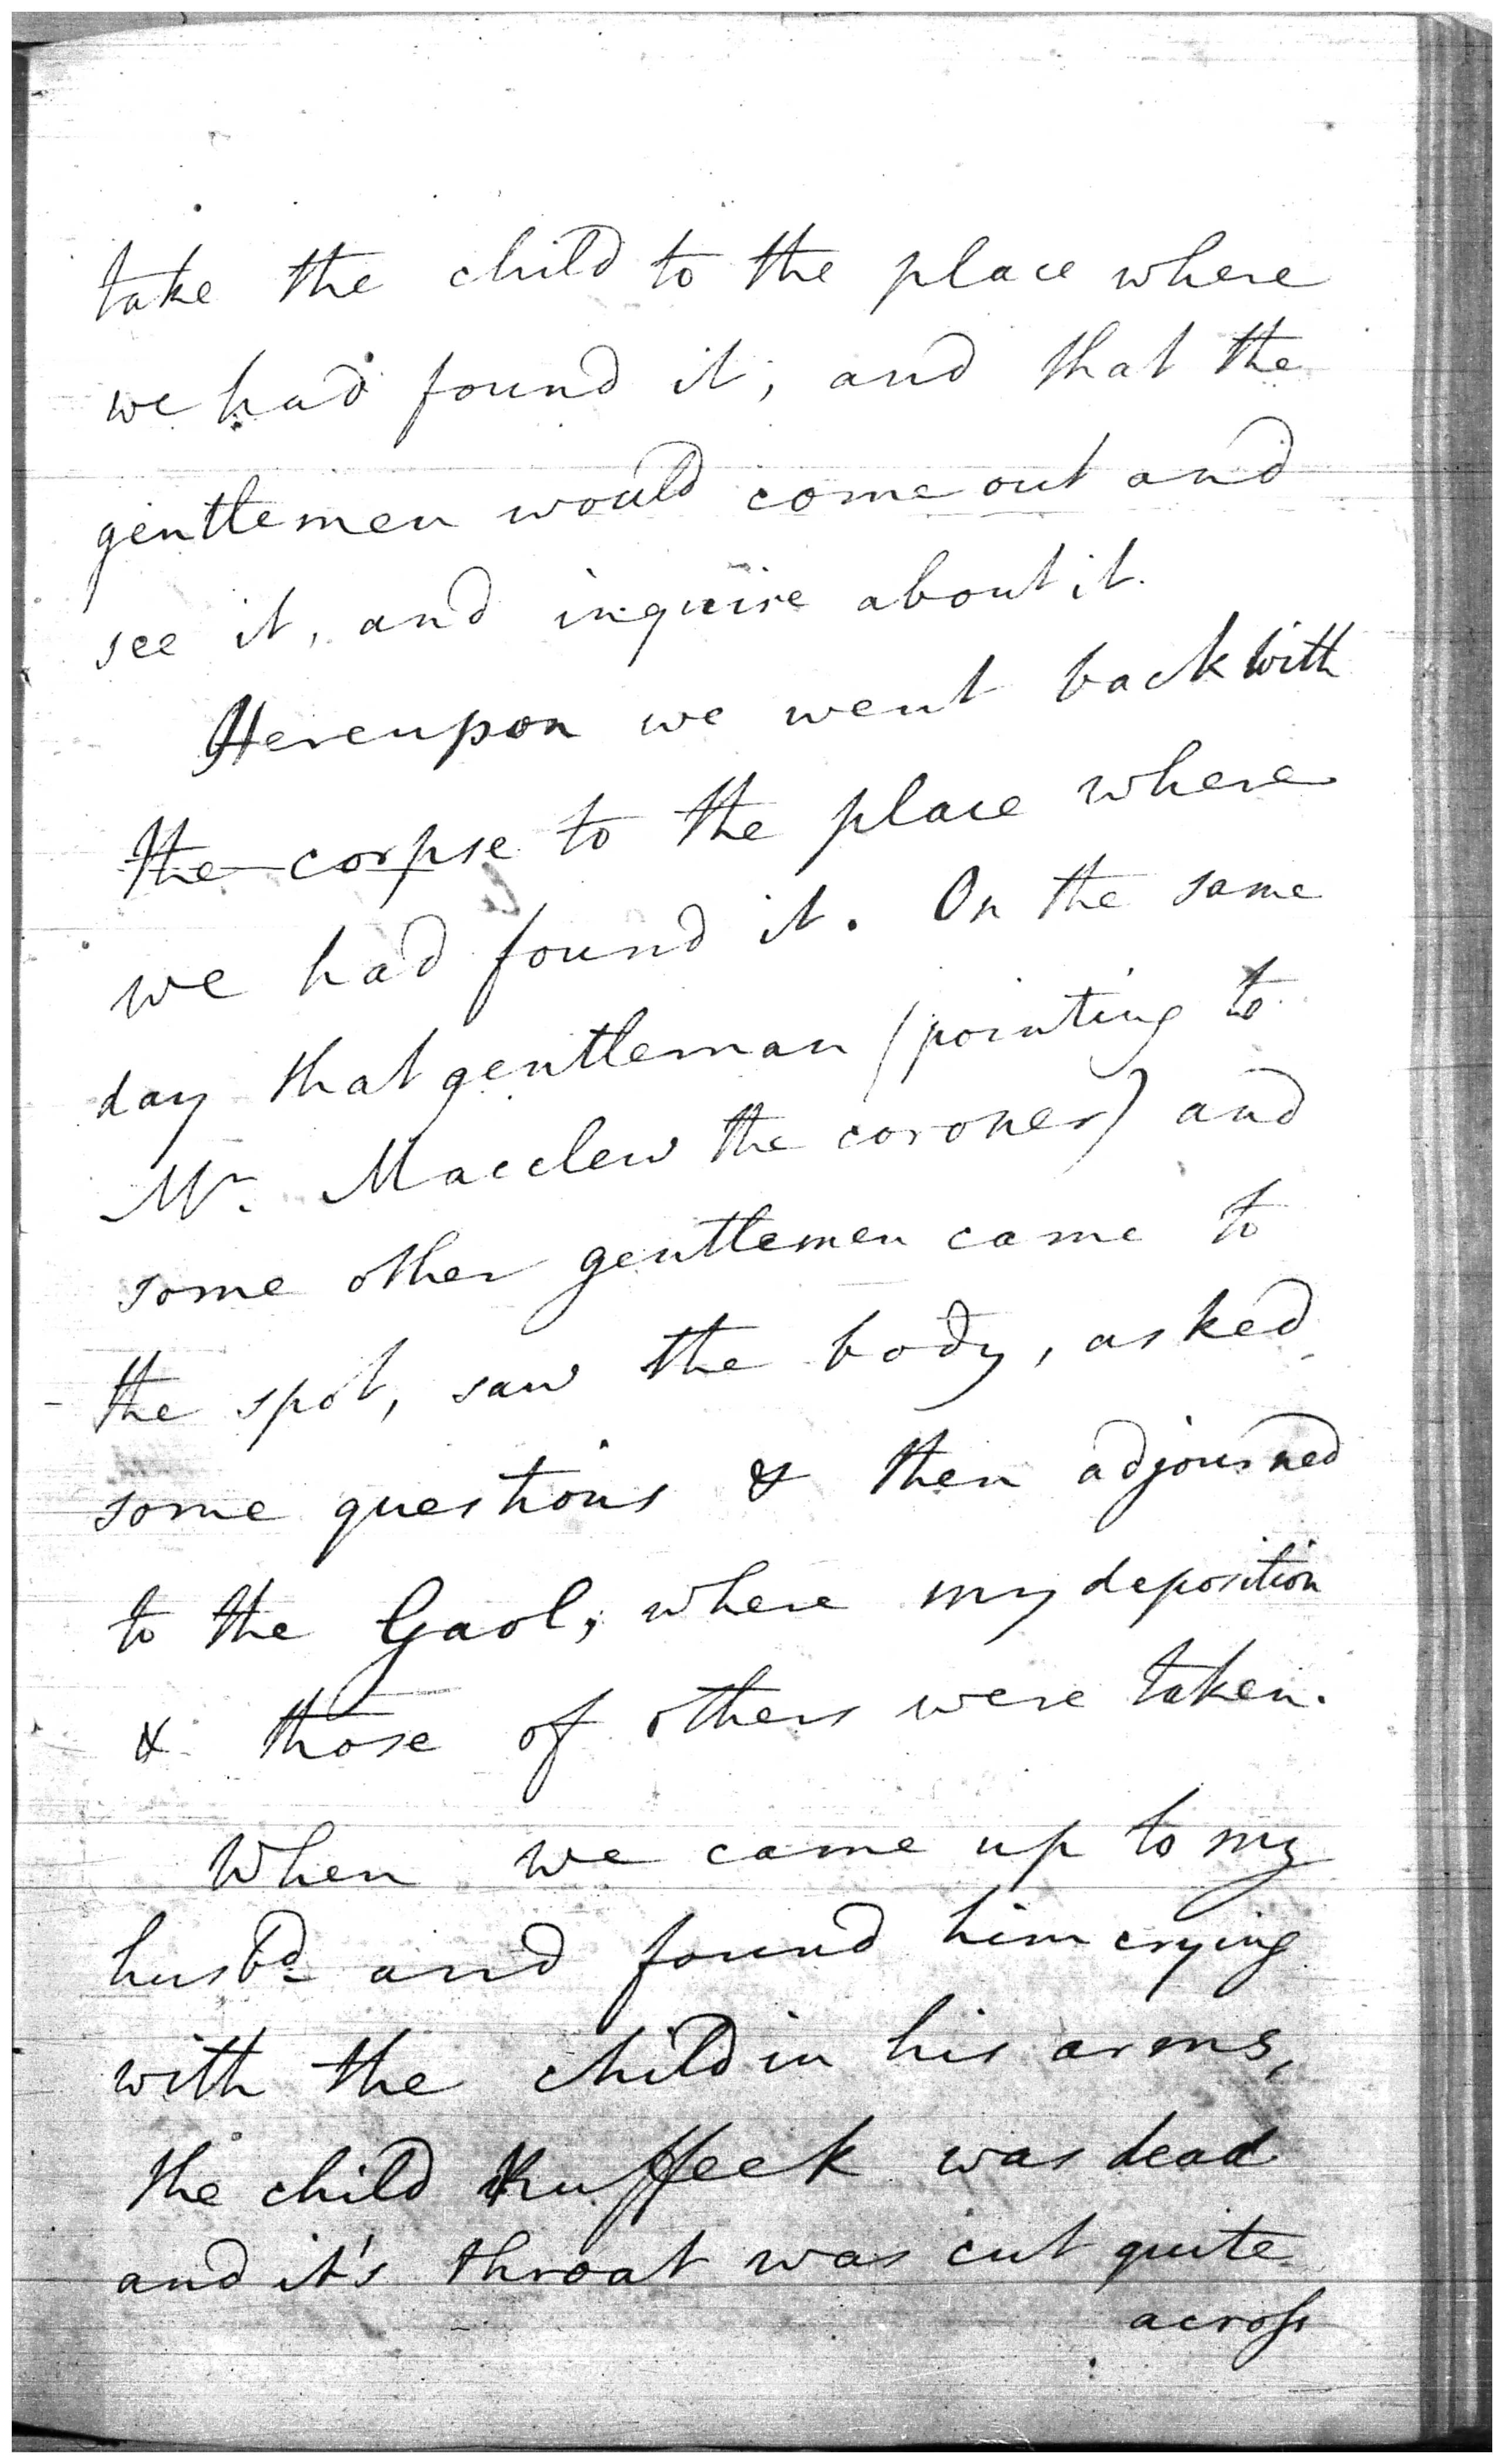 take the child to the place where
we had found it, and that the
gentlemen would come out and
see it, and inquire about it.
Hereupon we went back with
the corpse to the place where
we had found it. On the same
day that gentleman (pointing to
Mr. Macclew the coroner) and
some other gentlemen came to
the spot, saw the body, asked
some questions & then adjourned
to the Gaol, where my deposition
& those of others were taken.
When we came up to my
husbd and found him crying
with the child in his arms,
the child Ruffeek was dead
and it's throat was cut quite
across